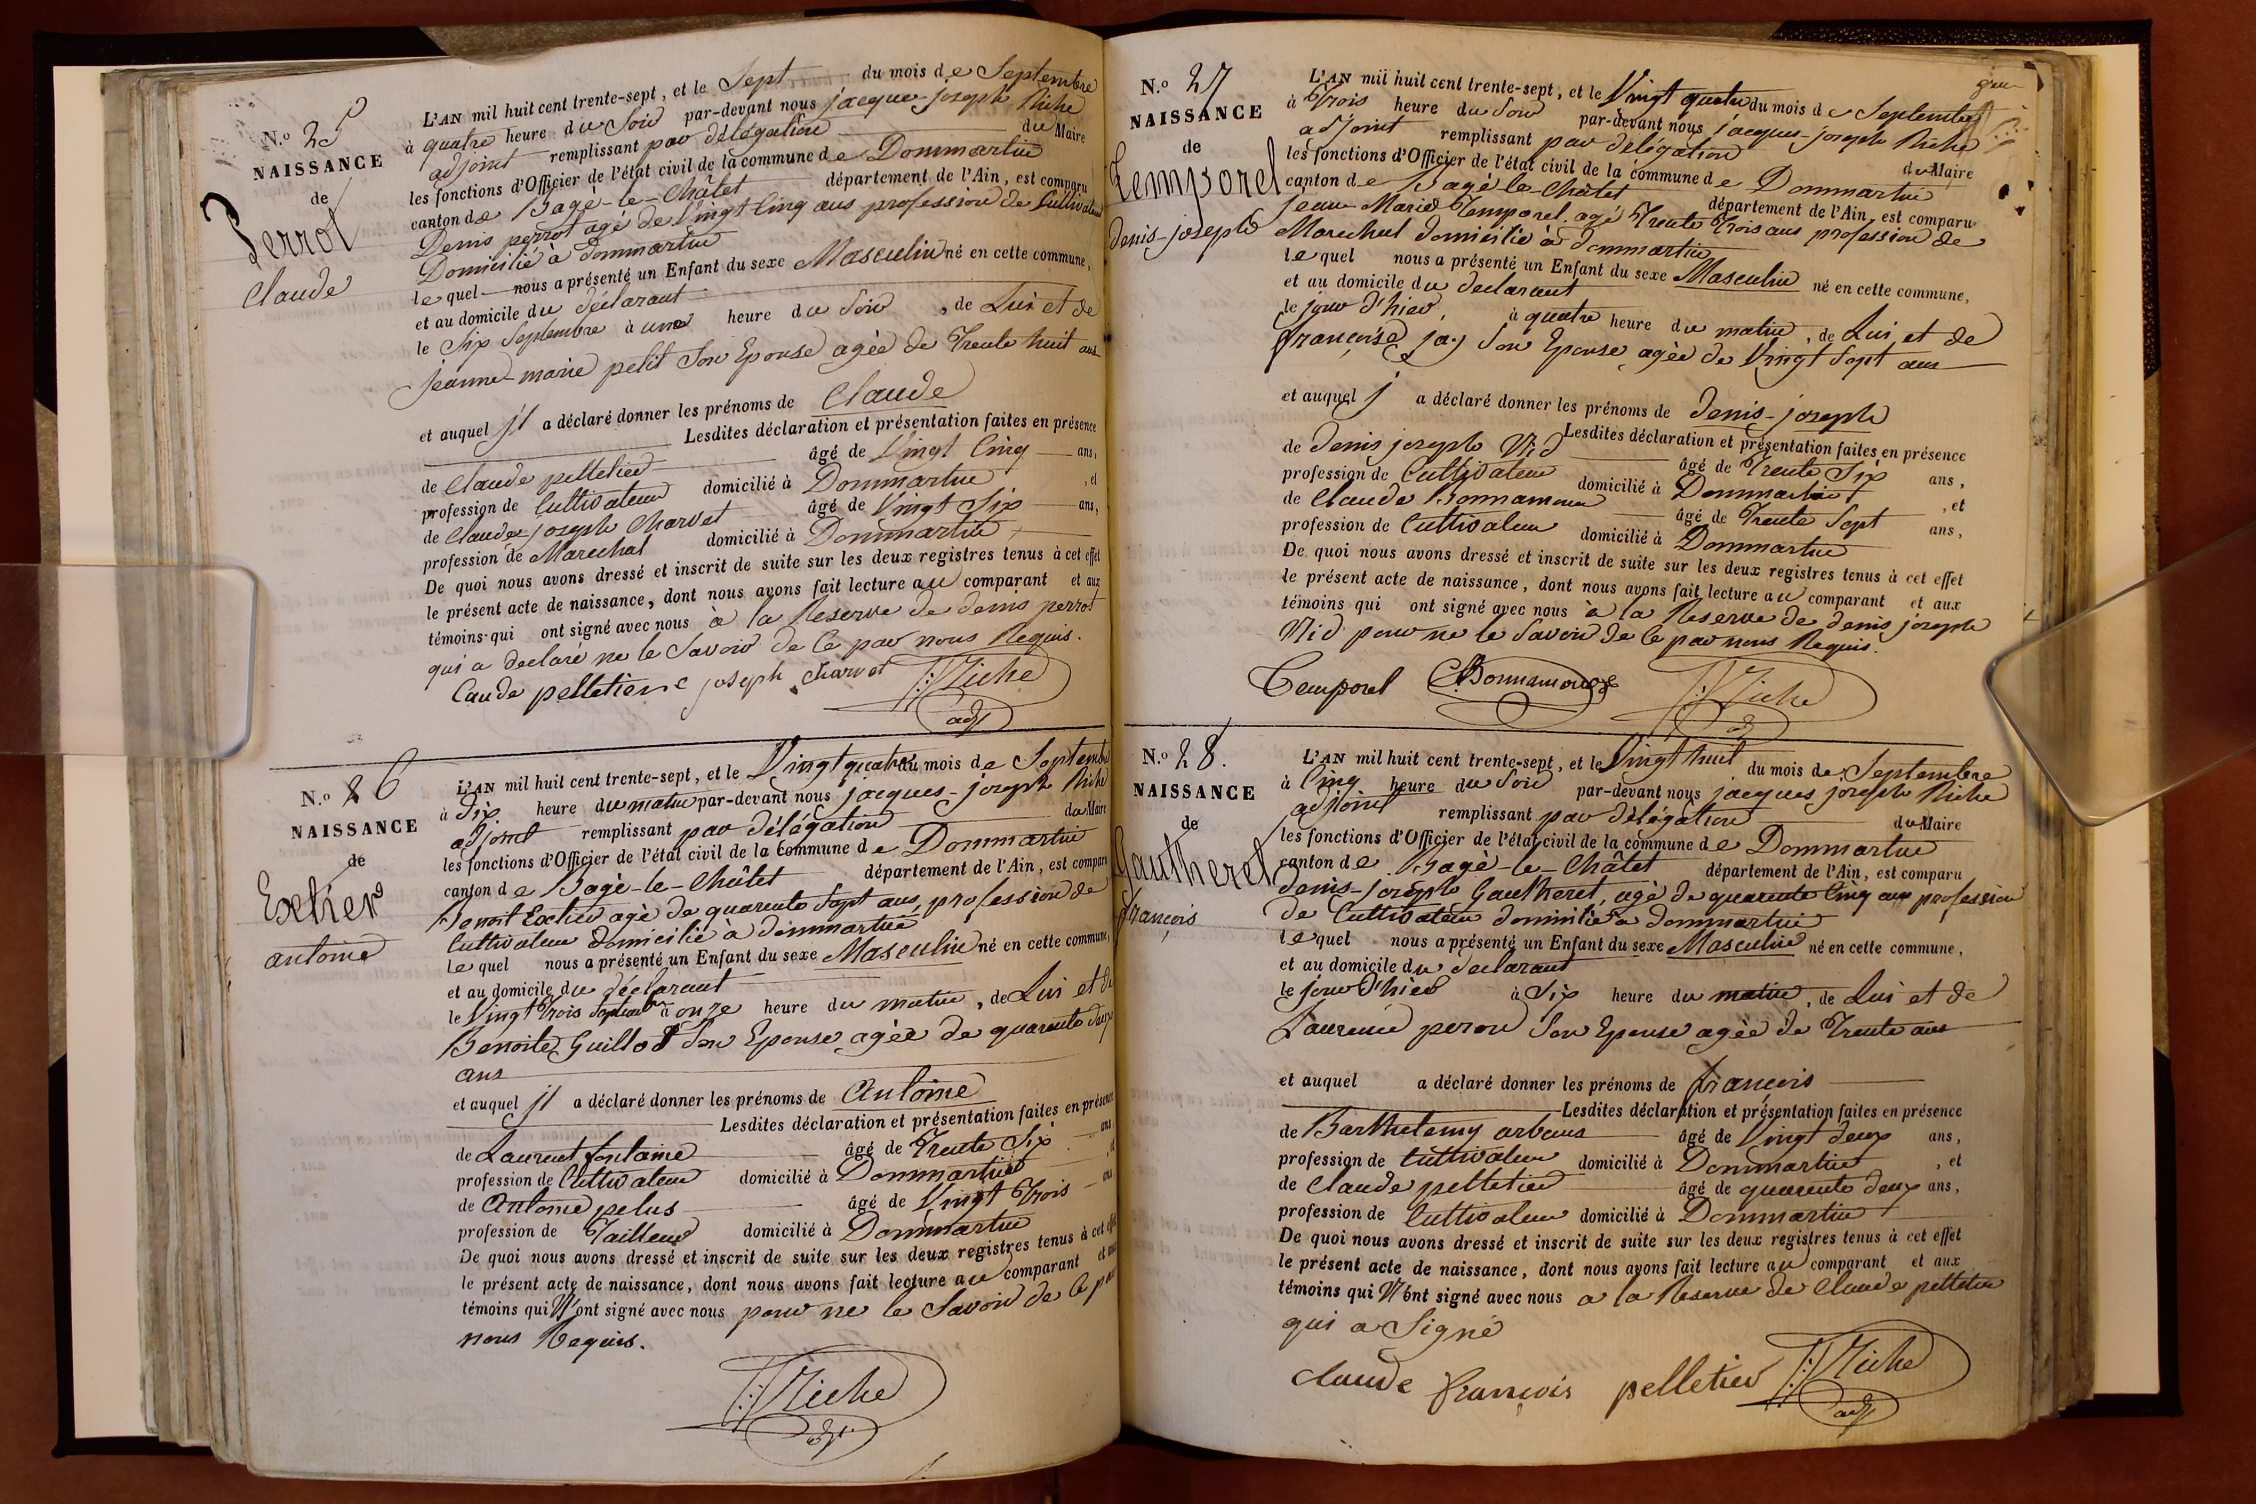 N.º 25
NAISSANCE
de
Perrot
Claude
L'AN mil huit cent trente-sept, et le Sept du mois de Septembre
à quatre heure du Soir par-devant nous jacque-joseph Riche
adjoint remplissant par délégation du Maire
les fonctions d'Officier de l'état civil de la commune de Dommartin
canton de Bagé-le-Châtel département de l'Ain, est comparu
Denis perrot agé de Vingt Cinq ans profession de Cultivateur
Domicilié à dommartin
lequel nous a présenté un Enfant du sexe Masculin né en cette commune,
et au domicile du déclarant
le Six Septembre à une heure du Soir, de Lui et de
Jeanne-marie petit Son Epouse agée de Trente huit ans
et auquel il a déclaré donner les prénoms de Claude
Lesdites déclaration et présentation faites en présence
de Claude pelletier âgé de Vingt Cinq ans,
profession de Cultivateur domicilié à Dommartin, et
de Claude joseph Charvet âgé de Vingt Six ans,
profession de Marechal domicilié à Dommartin
De quoi nous avons dressé et inscrit de suite sur les deux registres tenus à cet effet
le présent acte de naissance, dont nous avons fait lecture au comparant et aux
témoins qui ont signé avec nous à la Reserve de denis perrot
qui a declaré ne le Savoir de Ce par nous Requis.
Caude pelletier joseph Charvet Riche
adjt
N.º 26
NAISSANCE
de
Extier
antoine
L'AN mil huit cent trente-sept, et le Vingt quatre du mois de Septembre
à Dix heure du matin par-devant nous jacques-joseph Riche
adjoint remplissant par délégation du Maire
les fonctions d'Officier de l'état civil de la commune de Dommartin
canton de Bagé-le-Châtel département de l'Ain, est comparu
Benoit Extier agé de quarente Sept ans, profession de
Cultivateur domicilié a dommartin
lequel nous a présenté un Enfant du sexe Masculin né en cette commune,
et au domicile du déclarant
le Vingt Trois Septembre à onze heure du matin, de Lui et de
Benoite Guillot Son Epouse agée de quarente deux
ans
et auquel il a déclaré donner les prénoms de Antoine
Lesdites déclaration et présentation faites en présence
de Laurent fontaine âgé de Trente Six ans,
profession de Cultivateur domicilié à Dommartin, et
de Antoine pelus âgé de Vingt Trois ans
profession de Tailleur domicilié à Dommartin
De quoi nous avons dressé et inscrit de suite sur les deux registres tenus à cet effet
le présent acte de naissance, dont nous avons fait lecture au comparant et aux
témoins qui N'ont signé avec nous pour ne le Savoir de Ce par
nous Requis.
Riche
adjt
N.º 27
NAISSANCE
de
Temporel
denis-joseph
L'AN mil huit cent trente-sept, et le Vingt quatre du mois de Septembre
à Trois heure du Soir par-devant nous jacques-joseph Riche
adjoint remplissant par délégation du Maire
les fonctions d'Officier de l'état civil de la commune de Dommartin
canton de Bagé-le-Châtel département de l'Ain, est comparu
jean Marie Temporel agé Trente Trois ans profession de
Marechal domicilié à dommartin
lequel nous a présenté un Enfant du sexe Masculin né en cette commune,
et au domicile du declarant
le jour d'hier, à quatre heure du matin, de Lui et de
françoise jay Son Epouse agée de Vingt Sept ans
et auquel il a déclaré donner les prénoms de denis-joseph
Lesdites déclaration et présentation faites en présence
de denis joseph Nid âgé de Trente Six ans,
profession de Cultivateur domicilié à Dommartin, et
de Claude Bonnamour âgé de Trente Sept ans,
profession de Cultivateur domicilié à Dommartin
De quoi nous avons dressé et inscrit de suite sur les deux registres tenus à cet effet
le présent acte de naissance, dont nous avons fait lecture au comparant et aux
témoins qui ont signé avec nous à la Reserve de denis joseph
Nid pour ne le Savoir de Ce par nous Requis.
Temporel Bonnamour Riche
N.º 28.
NAISSANCE
de
Gautheret
françois
L'AN mil huit cent trente-sept, et le Vingt huit du mois de Septembre
à Cinq heure du Soir par-devant nous jacques joseph Riche
adjoint remplissant par délégation du Maire
les fonctions d'Officier de l'état civil de la commune de Dommartin
canton de Bagé-le-Châtel département de l'Ain, est comparu
denis-joseph Gautheret, agé de quarente Cinq ans profession
de Cultivateur domicilié à dommartin
lequel nous a présenté un Enfant du sexe Masculin né en cette commune,
et au domicile du declarant
le jour d'hier à Six heure du matin, de Lui et de
Laurence peron Son Epouse agée de Trente ans
et auquel a déclaré donner les prénoms de françois
Lesdites déclaration et présentation faites en présence
de Barthelemy arbans âgé de Vingt deux ans,
profession de Cultivateur domicilié à Dommartin, et
de Claude pelletier âgé de quarente deux ans,
profession de Cultivateur domicilié à Dommartin
De quoi nous avons dressé et inscrit de suite sur les deux registres tenus à cet effet
le présent acte de naissance, dont nous avons fait lecture au comparant et aux
témoins qui N'ont signé avec nous a la Reserve de Claude pelletier
qui a Signé
claude françois pelletier Riche
adjt